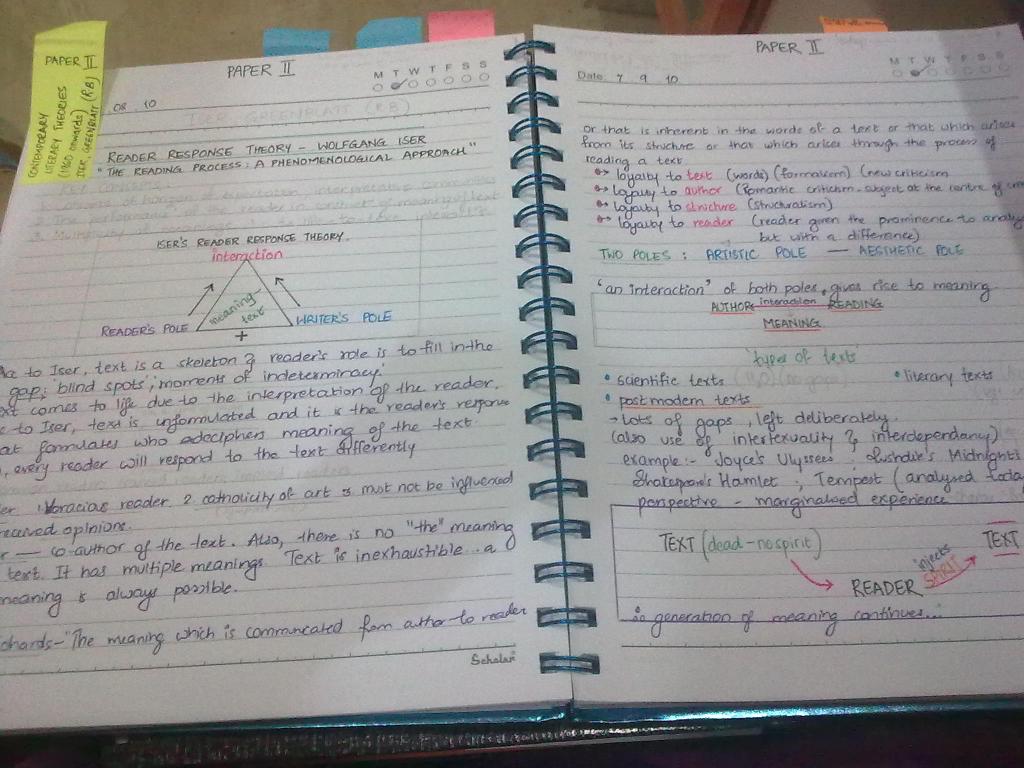 PAPER II
CONTEMPORARY
LITERARY THEORIES
(1960 onwards)
ISER, GREENBLATT (R.B)
PAPER II
M T W T F S S
08 10
ISER, GREENBLATT (R.B)
READER RESPONSE THEORY - WOLFGANG ISER
"THE READING PROCESS: A PHENOMENOLOGICAL APPROACH"
ISER'S READER RESPONSE THEORY.
interaction
meaning-
text
READER'S POLE
WRITER'S POLE
+
to Iser, text is a skeleton & reader's role is to fill in the
gap; blind spots; moments of indeterminacy.
comes to life due to the interpretation of the reader.
to Iser, text is unformulated and it is the reader's response
at formulates who adeciphers meaning of the text.
, every reader will respond to the text differently
Voracious reader. 2. catholicity of art & must not be influenced
opinions.
— co-author of the text. Also, there is no "the" meaning
text. It has multiple meanings. Text is inexhaustible... a
meaning is always possible.
chards - "The meaning which is communicated from author to reader
Scholar
PAPER II
M T W T F S S
Date 7 9 10
or that is inherent in the words of a text or that which arises
from its structure or that which arises through the process of
reading a text
loyalty to text (words) (formalism) (new criticism
loyalty to author (romantic criticism - subject at the centre of
loyalty to structure (structuralism)
loyalty to reader (reader given the prominence to analy
but with a difference)
TWO POLES : ARTISTIC POLE — AESTHETIC POLE
'an interaction' of both poles, gives rise to meaning
AUTHOR interaction READING
MEANING
'types of texts'
• scientific texts (no gaps) • literary texts
• postmodern texts
→ Lots of gaps, left deliberately.
(also use of intertexuality & interdependency)
example:- Joyce's Ulysses; Rushdie's Midnight's
Shakespeare's Hamlet; Tempest (analysed
perspective - marginalised experience
TEXT (dead - no spirit)
TEXT
injects
SPIRIT
READER
∴ generation of meaning continues...